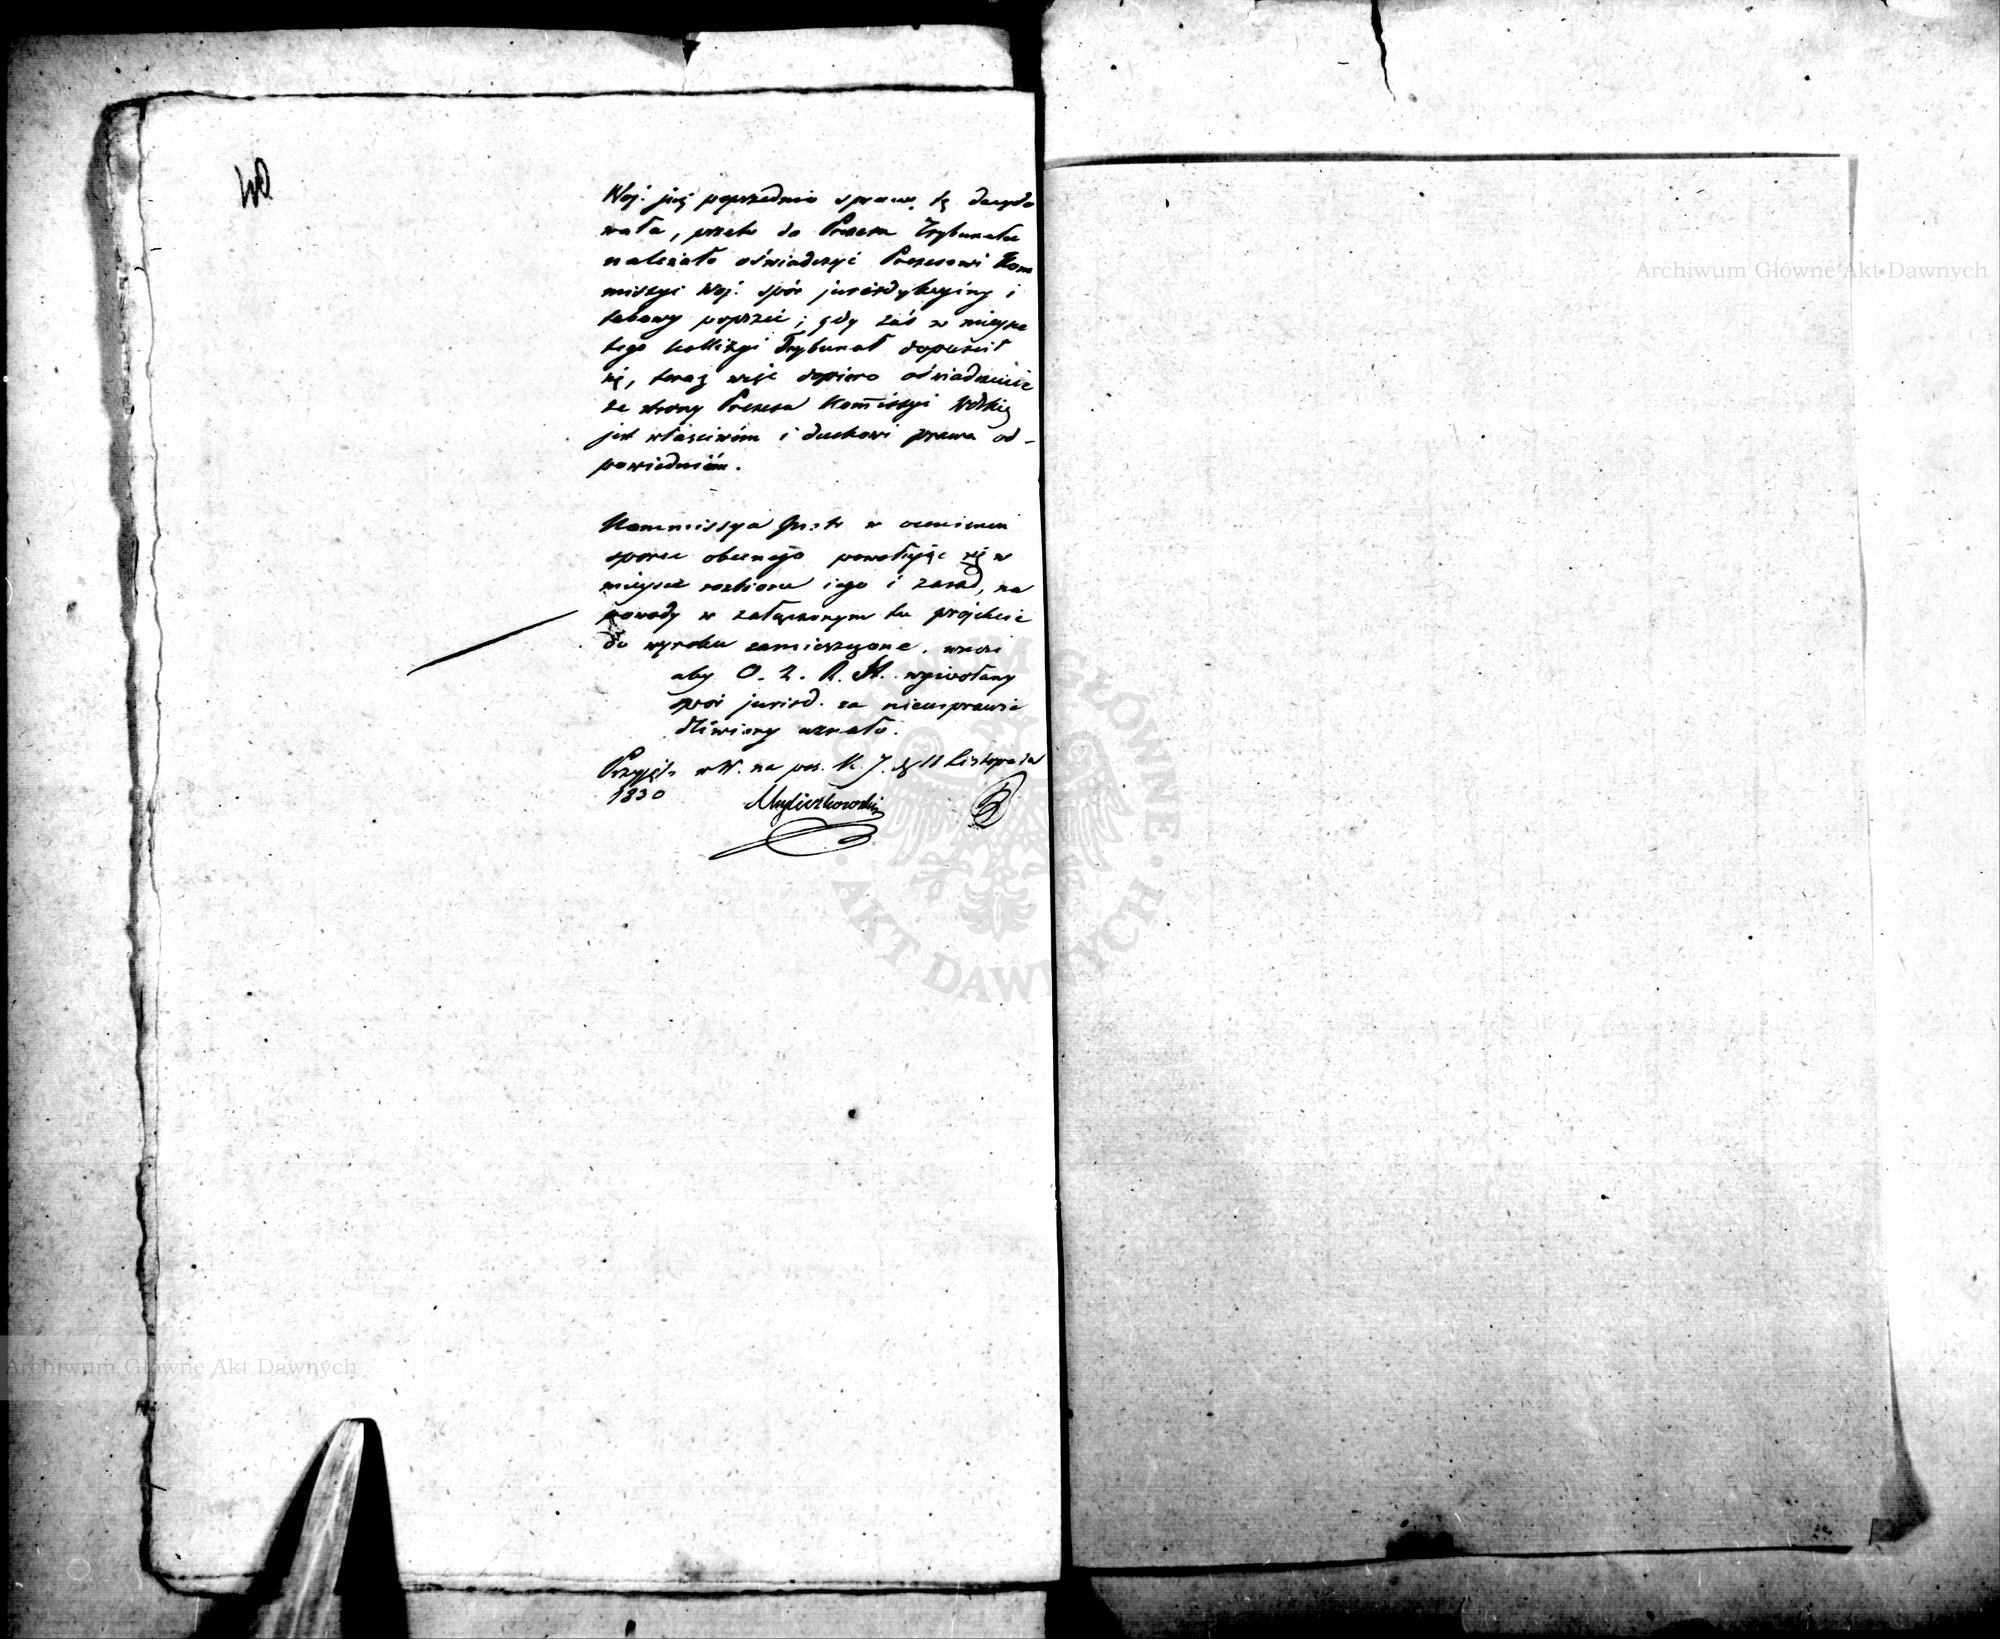 Woj. już poprzednio sprawę tę decydo
wała, przeto do Prezesa Trybunału
należało oświadczyć Prezesowi Kom
missyi Woj. spór jurisdykcyiny i
takowy poprzeć; gdy zaś w mieysce
tego kollizyi Trybunał dopuścił
się, teraz więc dopiero oświadczenie
ze strony Prezesa Kommissyi Wdzkiey
jest właściwém i duchowi prawa od-
powiedniém.
Kommissya w ocenieniu
sporu obecnego powołując się w
mieysce rozbioru iego i zasad, na
powody w załączonym tu projekcie
do wyroku zamieszczone, wnosi
aby O. Z. R. St. wywołany
spór jurisd. za nieusprawie
dliwiony uznało.
Przyjęto w W. na pos. K. J. d. 11 Listopada
1830
Archiwum Główne Akt Dawnych
Archiwum Główne Akt Dawnych
ARCHIWUM GŁÓWNE · AKT DAWNYCH ·